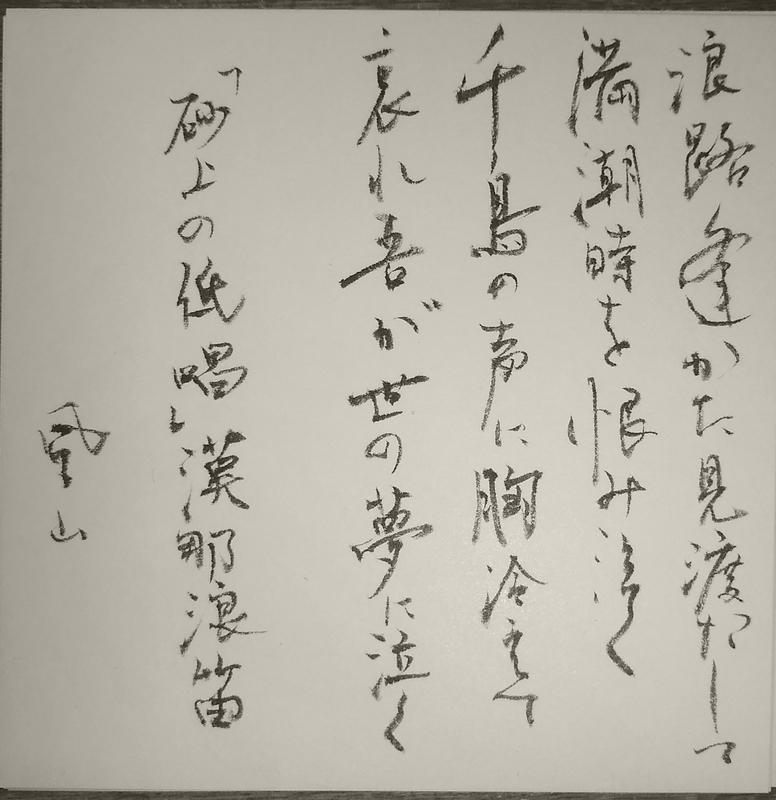 浪路逢かた見渡たして
満潮時を恨み泣く
千鳥の声に胸冷えて
哀れ吾が世の夢に泣く
「砂上の低唱」漢那浪笛